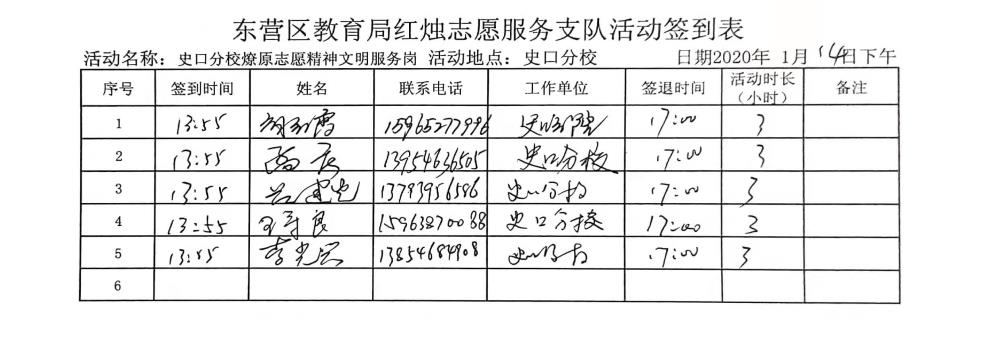 东营区教育局红烛志愿服务支队活动签到表
活动名称：史口分校燎原志愿精神文明服务岗 活动地点：史口分校 日期2020年 1月 14日下午
序号 签到时间 姓名 联系电话 工作单位 签退时间 活动时长（小时） 备注
1 13:55 15965277996 17:00 3
2 13:55 13954636505 史口分校 17:00 3
3 13:55 13793956586 史口分校 17:00 3
4 13:55 王寿良 15963870088 史口分校 17:00 3
5 13:55 李光宗 13854684908 史口分校 17:00 3
6